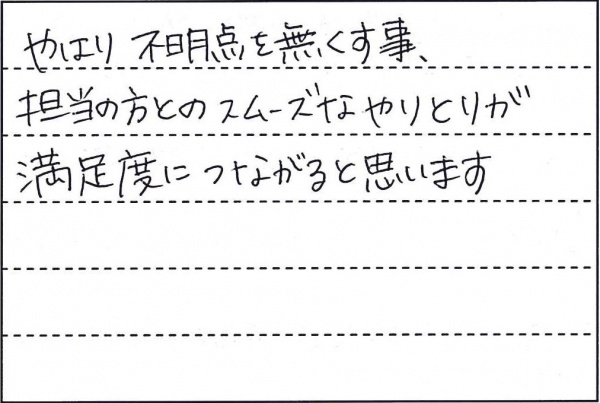 やはり不明点を無くす事、
担当の方とのスムーズなやりとりが
満足度につながると思います